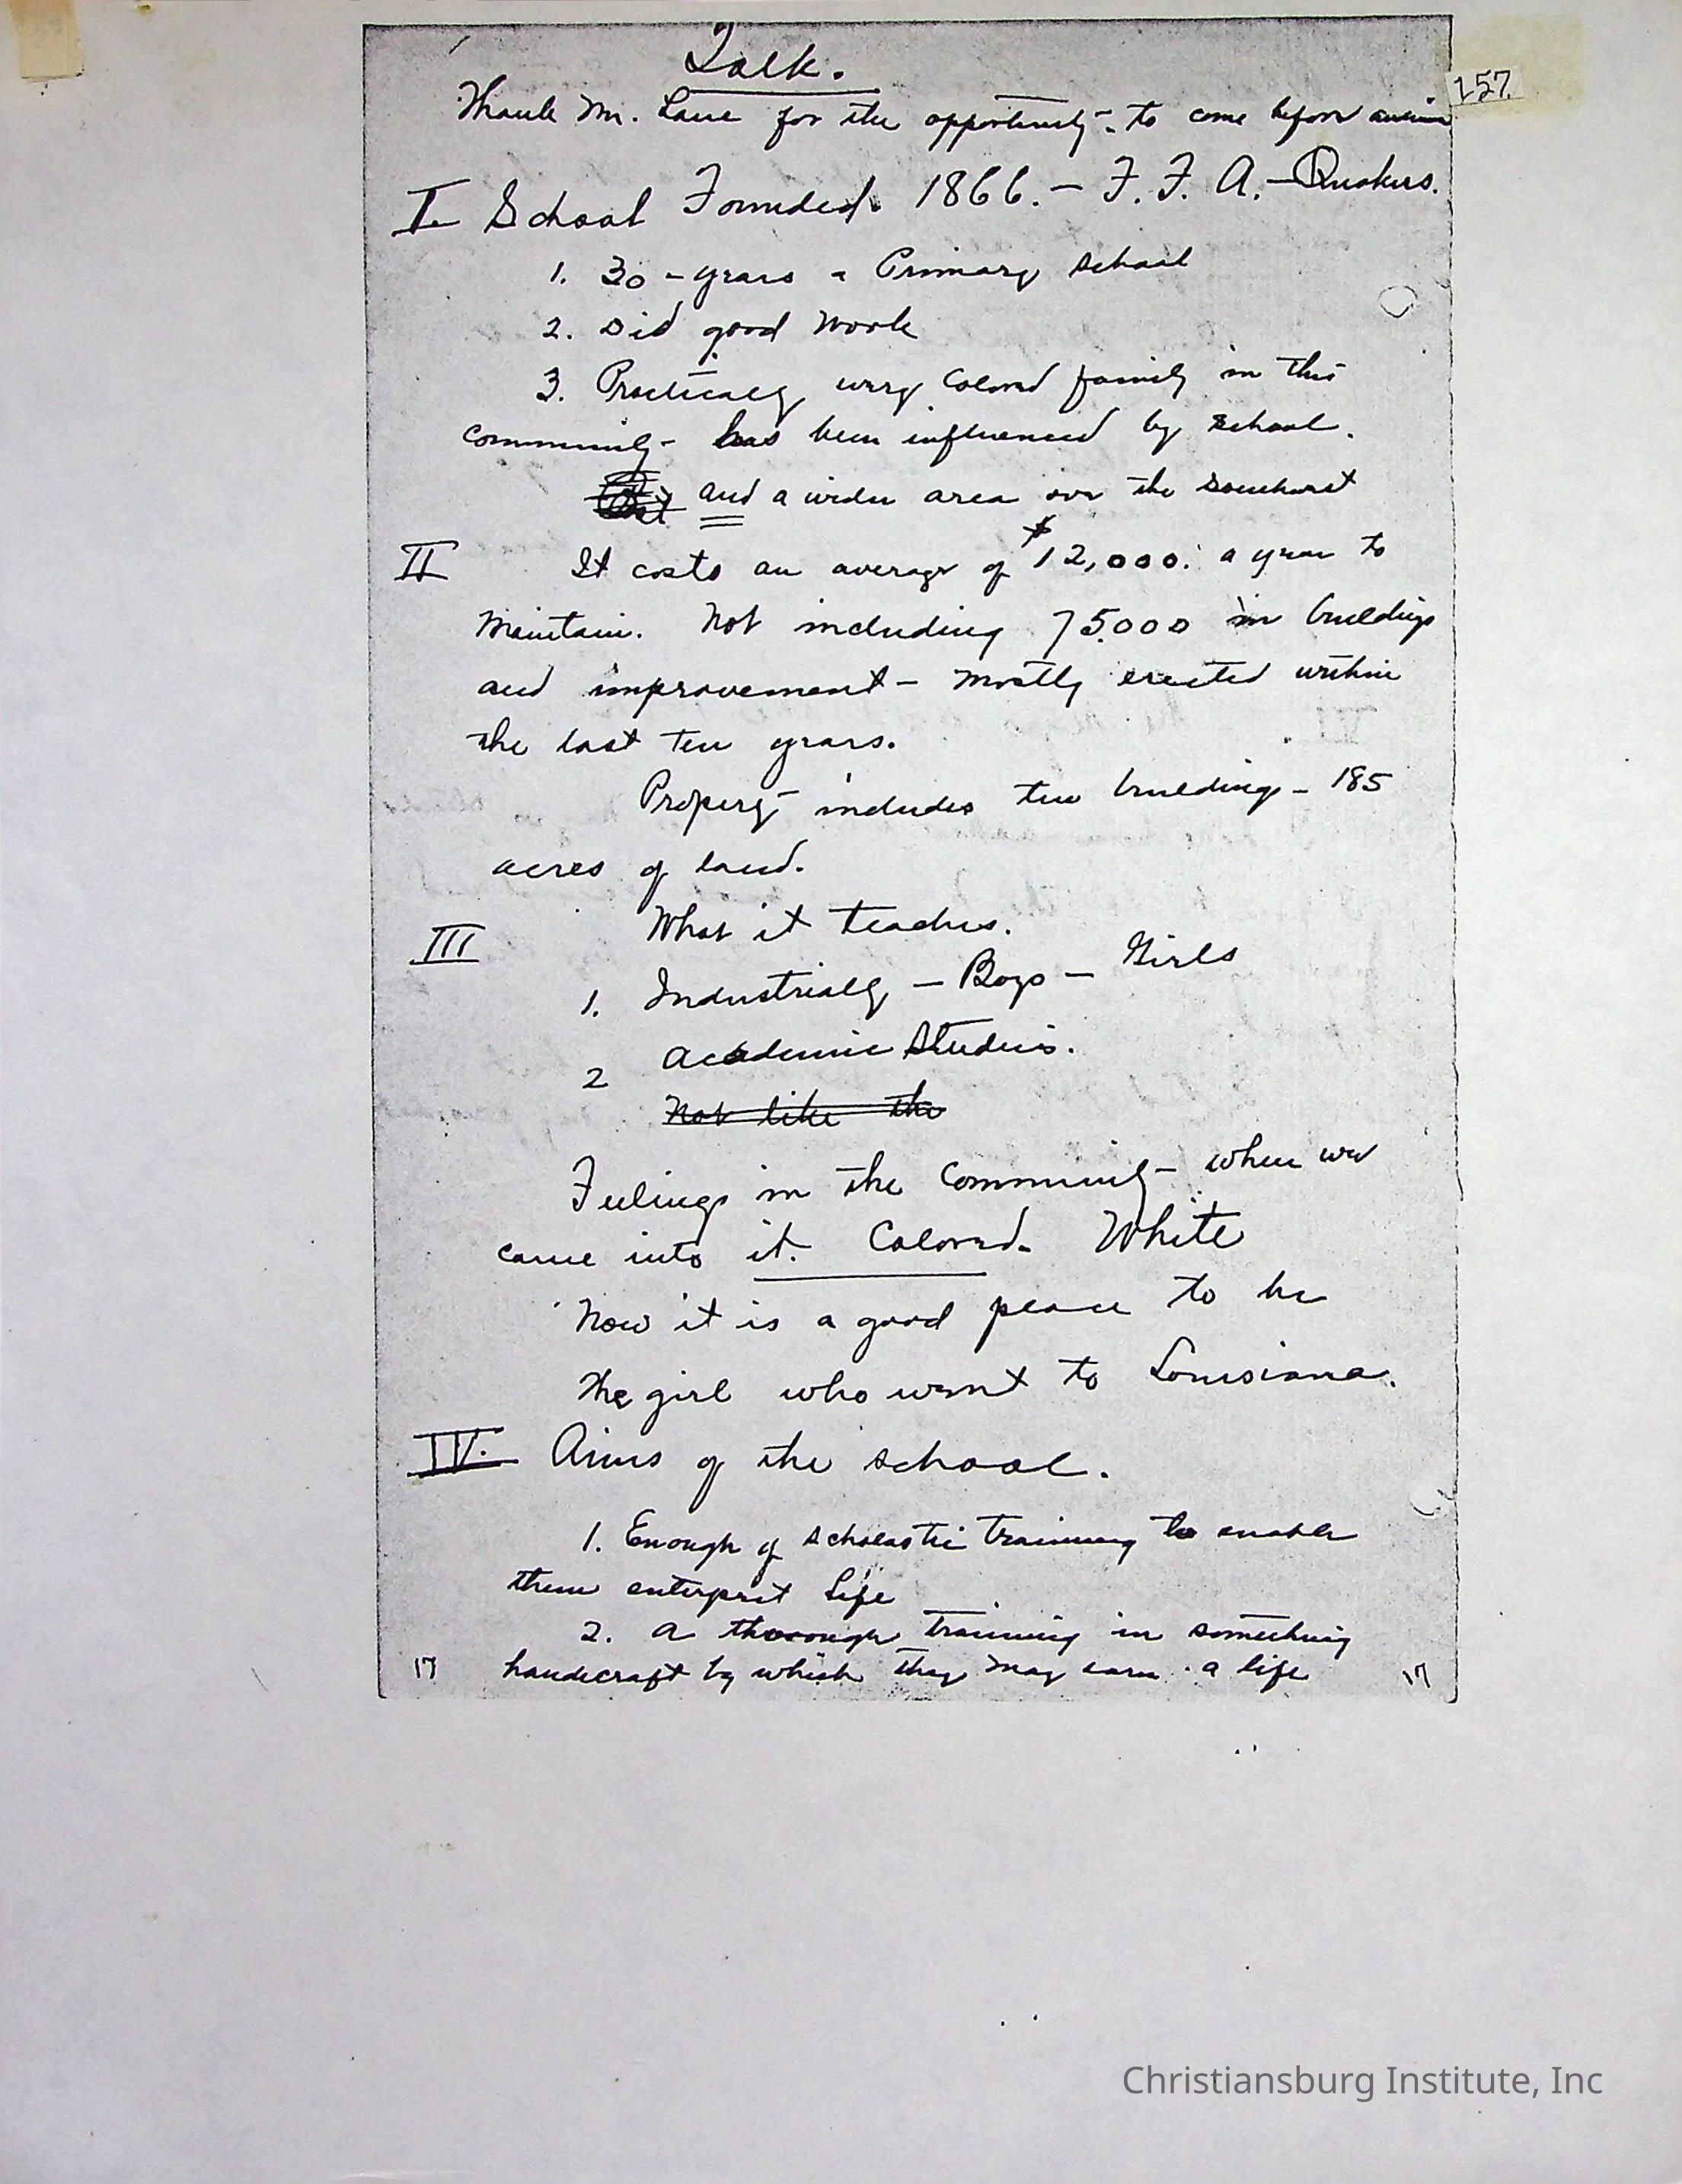 Talk.
157.
Thank Mr. Lane for the opportunity - to come before
I School Founded. 1866. - F. F. A. - Quakers.
1. 30 - years - Primary School
2. Did good work
3. Practically every Colored family in this
community - has been influenced by school.
and a wider area over the Southwest
II It costs an average of $12,000. a year to
maintain. Not including 75,000 in buildings
and improvement - mostly erected within
the last ten years.
Property includes ten buildings - 185
acres of land.
III What it teaches.
1. Industrially - Boys - Girls
2 Academic Studies.
Not like the
Feelings in the Community - when we
came into it. Colored. White
Now it is a good place to be
The girl who went to Louisiana.
IV. Aims of the school.
1. Enough of scholastic training to enable
them enterpret life
2. A thorough training in something
17 handicraft by which they may earn a life 17
Christiansburg Institute, Inc